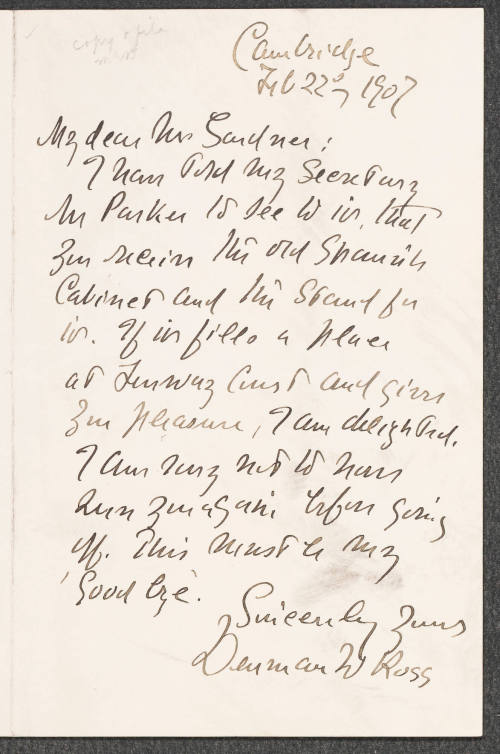 copy & file
Cambridge
Feb 22d 1907
My dear Mrs Gardner:
I have told my Secretary
Mr Parker to see to it, that
you receive the old Spanish
Cabinet and the stand for
it. If it fills a place
at Fenway Court and gives
you pleasure, I am delighted.
I am sorry not to have
seen you again before going
off. This must be my
'Good bye'.
Sincerely yours
Denman W Ross